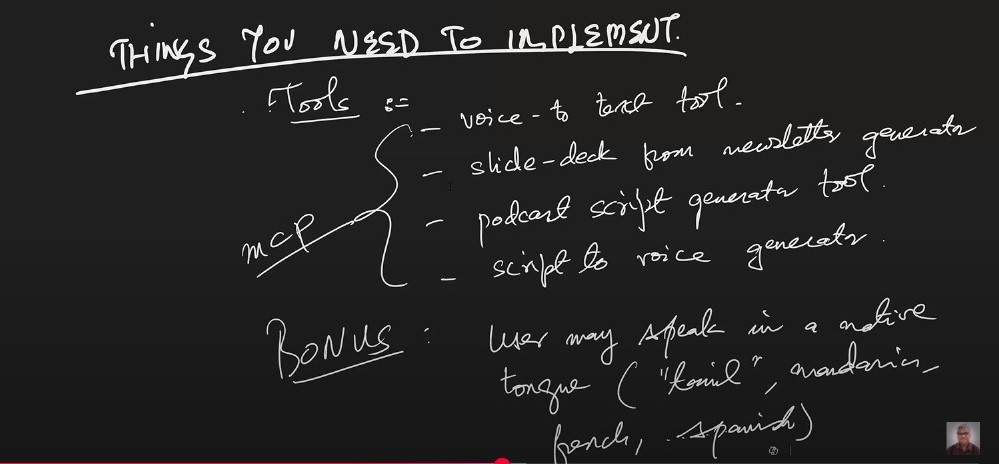 THINGS YOU NEED TO IMPLEMENT.
Tools :=
- voice-to text tool.
- slide-deck from newsletter generator
- podcast script generator tool.
mcp
- script to voice generator.
BONUS : User may speak in a native
tongue ("tamil", mandarin,
french, spanish)